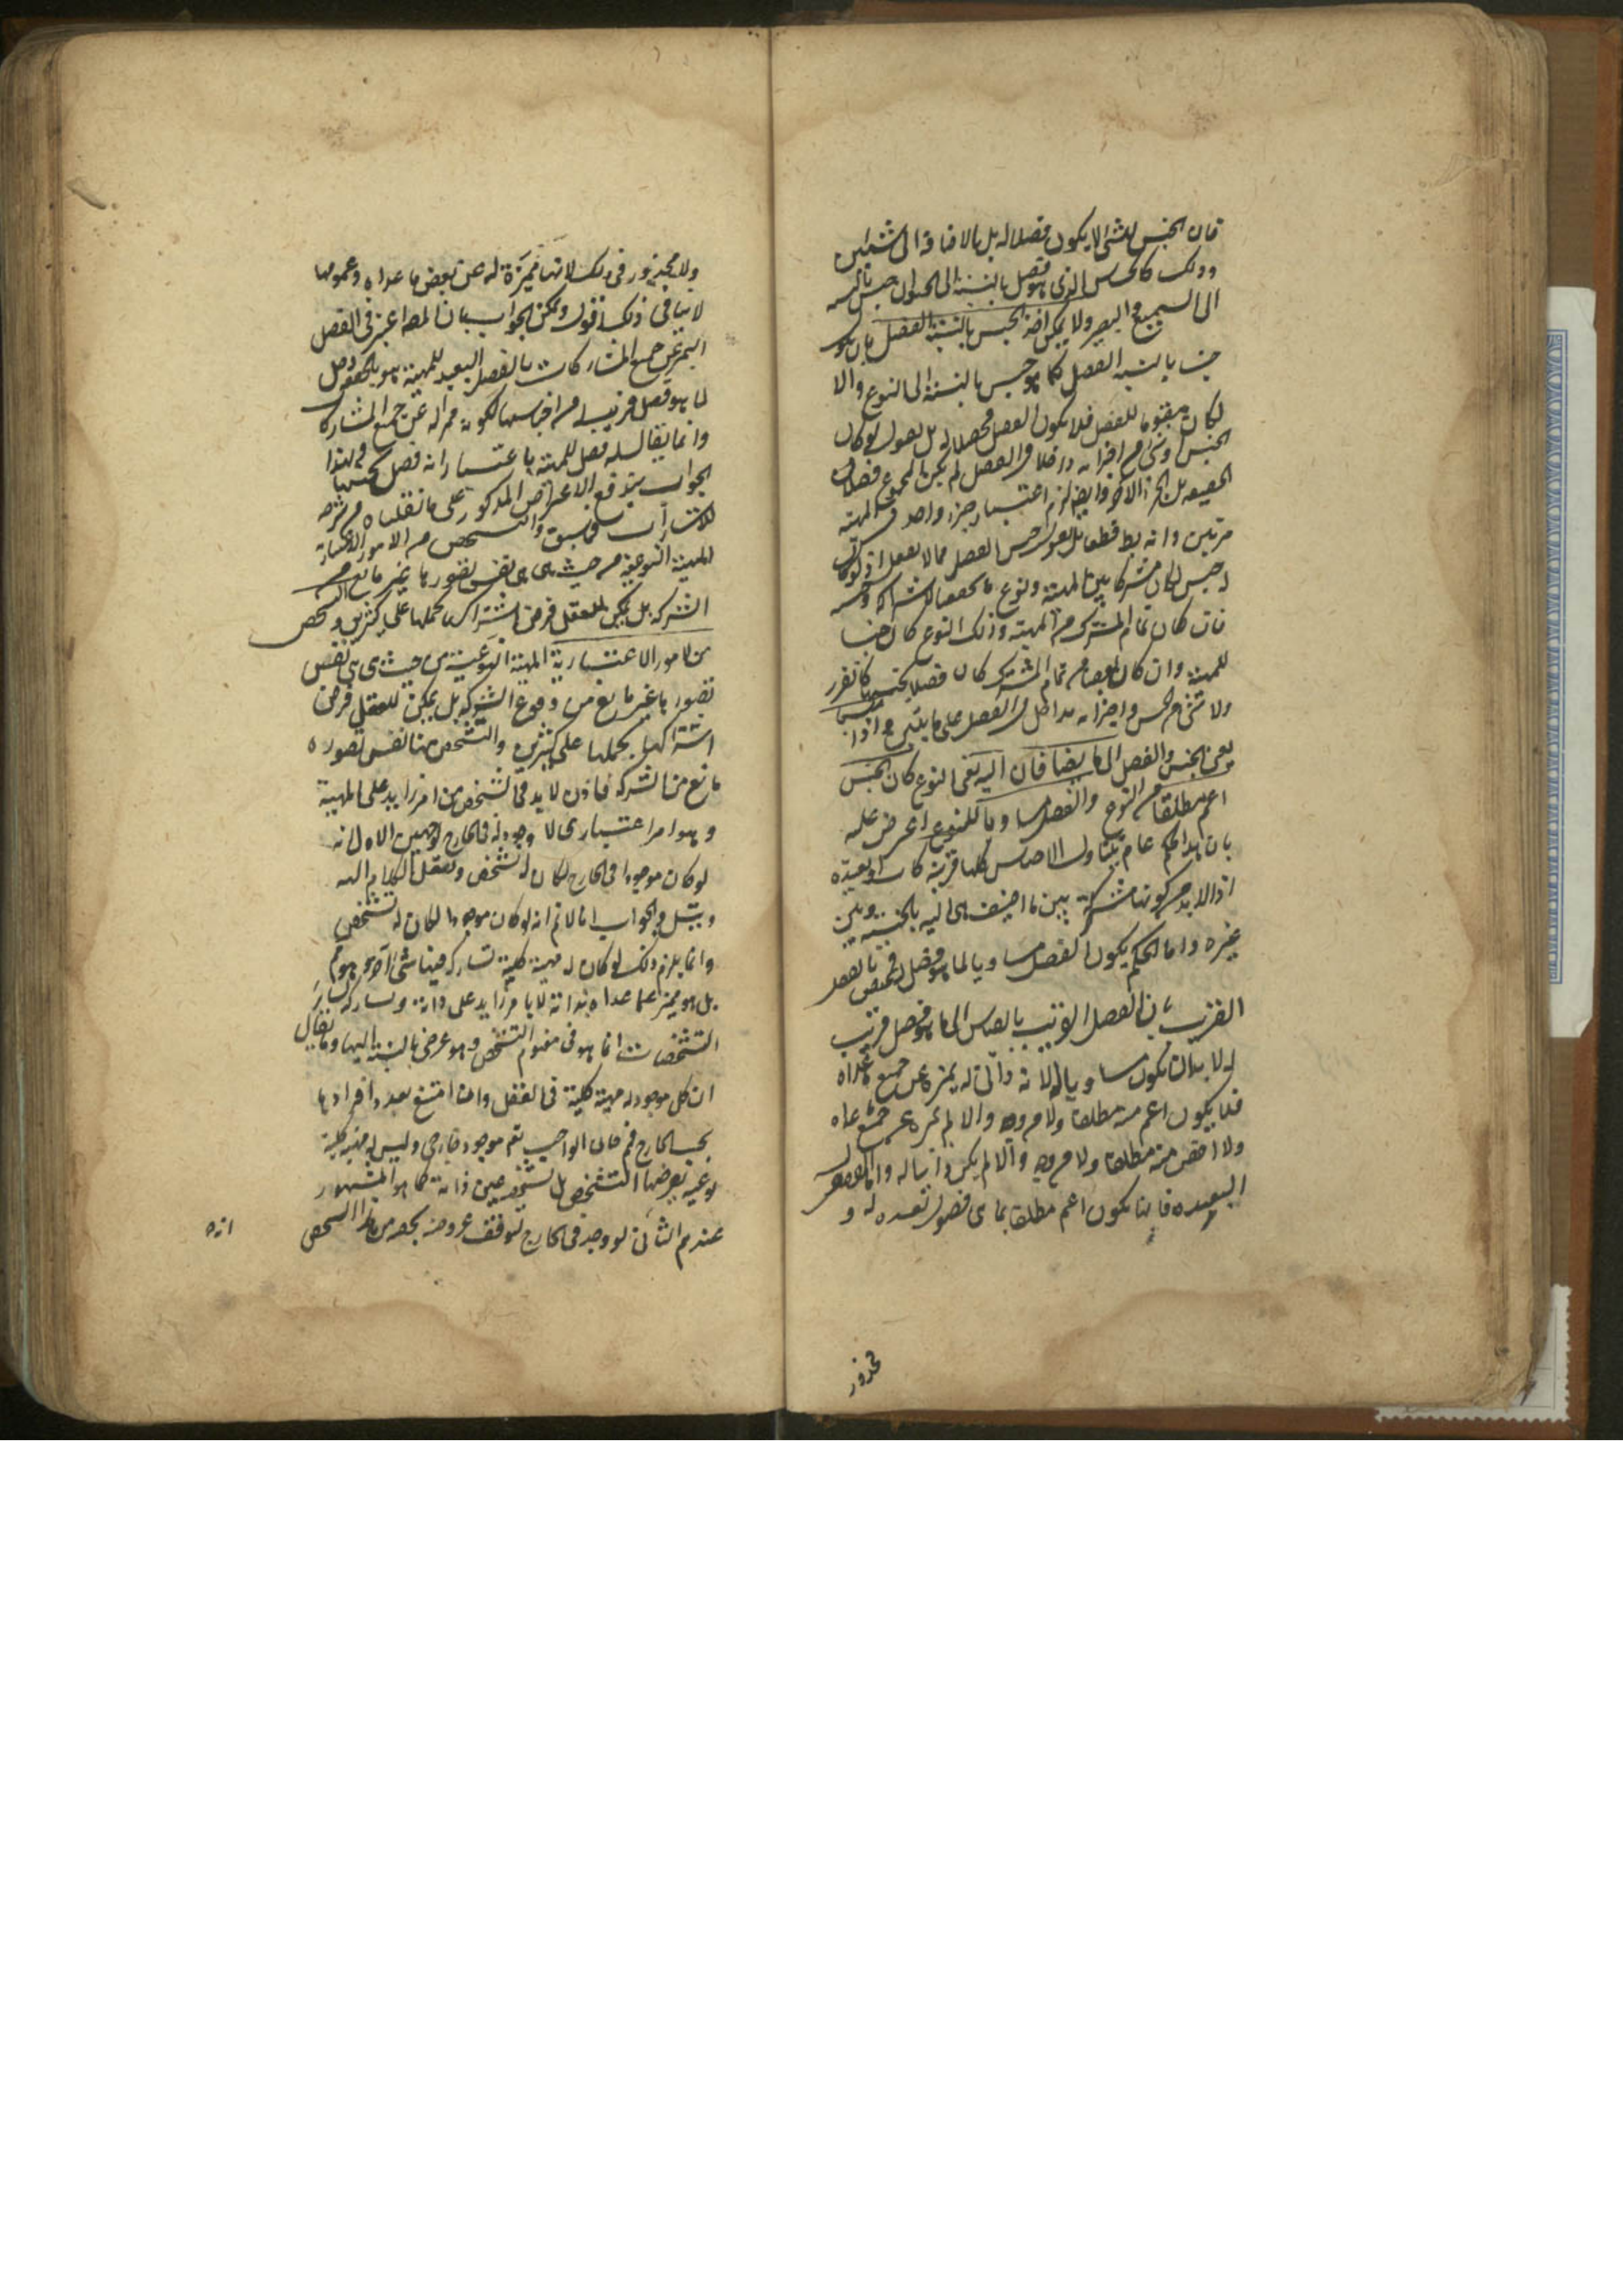 فان الجنس للشئ لا يكون فصلا له بل بالاضافة الى شيئين
وذلك كالحساس الذى هو فصل بالنسبة الى الحيوان جنس بالنسبة
الى السميع والبصير ولا يمكن اخذ الجنس بالنسبة الى الفصل بان يكون
جنسا بالنسبة الى الفصل كما هو جنس بالنسبة الى النوع والا
لكان مقوما للفصل فلا يكون الفصل محصلا له بل نقول لو كان
الجنس او شئ من اجزائه داخلا فى الفصل لم يكن المجموع فصلا فى
الحقيقة بل الجزء الاخر وايضا لزم اعتبار جزء واحد فى المهية
مرتين وانه بط قطعا بل نقول جنس الفصل مما لا يعقل اذ لو كان
له جنس لكان مشتركا بين المهية ونوع ما
فان كان تمام المشترك بين المهية وذلك النوع كان جنسا
للمهية وان كان بعضا من تمام المشترك كان فصلا لجنسها كما تقرر
ولا شئ من الجنس واجزائه بداخل فى الفصل على ما تبين واذا نسبا
يعنى الجنس والفصل الى ما يضافان اليه يعنى النوع كان الجنس
اعم مطلقا من النوع والفصل مساويا للنوع اعترض عليه
بان هذا الحكم عام يتناول الاجناس كلها قريبة كانت او بعيدة
اذ لا بد من كونها مشتركة بين ما اضيف هى اليه بالجنسية وبين
غيره واما الحكم بكون الفصل مساويا لما هو فصل له فمختص بالفصل
القريب فان الفصل القريب بالقياس الى ما هو فصل قريب
له لا بد ان يكون مساويا له لانه ذاتى له يميزه عن جميع ما عداه
فلا يكون اعم منه مطلقا ولا من وجه والا لم يميزه عن جميع ما عداه
ولا اخص منه مطلقا ولا من وجه والا لم يكن ذاتيا له واما الفصول
البعيدة فانما يكون اعم مطلقا بما هى فصول بعيدة له و
محذور
ولا محذور فى ذلك لانها مميزة له عن بعض ما عداه وعمومها
لا ينافى ذلك اقول ويمكن الجواب بان المصه اعتبر فى الفصل
التميز عن جميع المشاركات فالفصل البعيد للمهية هو بالحقيقة فصل
لما هو فصل قريب له من اجناسها لكونه مميزا له عن جميع المشاركات
وانما يقال له فصل للمهية باعتبار انه فصل لجنسها وبهذا
الجواب يندفع الاعتراض المذكور على ما نقلناه من شرحه
للاشارات فيما سبق والتشخص من الامور الاعتبارية
المهية النوعية من حيث هى هى نفس تصورها غير مانع من
الشركة بل يمكن للعقل فرض اشتراكها بحملها على كثيرين والتشخص
من الامور الاعتبارية المهية النوعية من حيث هى هى نفس
تصورها غير مانع من وقوع الشركة بل يمكن للعقل فرض
اشتراكها بحملها على كثيرين والشخص منها نفس تصوره
مانع من الشركة فاذن لا بد فى الشخص من امر زايد على المهية
وهو امر اعتبارى لا وجود له فى الخارج لوجهين الاول انه
لو كان موجودا فى الخارج لكان له تشخص وننقل الكلام اليه
ويتسل والجواب انا لا نم انه لو كان موجودا لكان له تشخص
وانما يلزم ذلك لو كان له مهية كلية تشاركه فيها شئ اخر وهو مم
بل هو مميز عما عداه بذاته لا بامر زايد على ذاته ومشاركة لساير
التشخصات انما هو فى مفهوم التشخص وهو عرضى بالنسبة اليها وما يقال
ان كل موجود له مهية كلية فى العقل وان امتنع تعدد افرادها
بحسب الخارج فمم فان الواجب تعم موجود خارجى وليس له مهية كلية
نوعية يعرضها التشخص بل تشخصه عين ذاته كما هو المشهور
عندهم الثانى انه لو وجد فى الخارج لتوقف عروضه بحصة من هذا التشخص